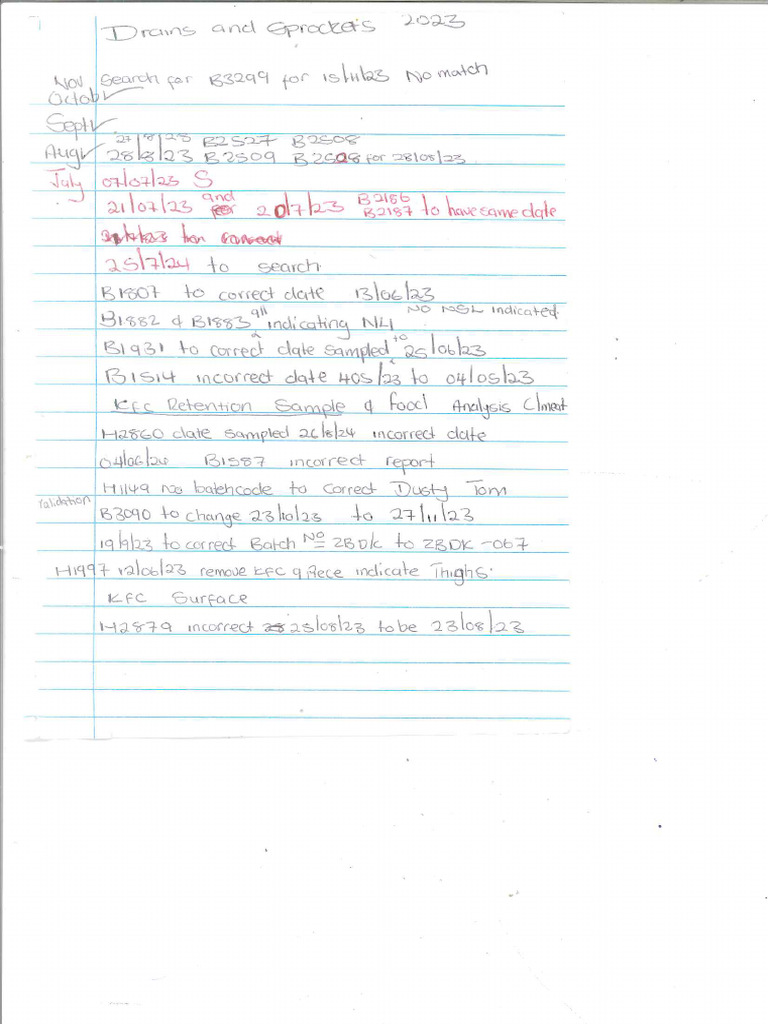 Drains and Sprockets 2023
Nov Search for B3299 for 15/11/23 No match
Octob ✓
Sept ✓
27/8/23 B2527 B2508
Aug ✓ 28/8/23 B2509 B2508 for 28/08/23
July 07/07/23 S
21/07/23 and 20/7/23 B2186 B2187 to have same date
25/7/24 to search
B1807 to correct date 13/06/23
B1882 & B1883 all indicating NLI NO NSL indicated
B1931 to correct date sampled to 25/06/23
B1514 incorrect date 405/23 to 04/05/23
KFC Retention Sample & Food Analysis Climeat
H2860 date sampled 26/8/24 incorrect date
04/06/24 B1587 incorrect report
H1149 no batchcode to correct Dusty Tom
Validation B3090 to change 23/10/23 to 27/11/23
19/9/23 to correct Batch No ZBDK to ZBDK -067
H1997 12/06/23 remove KFC 9 Piece indicate Thighs.
KFC Surface
H2879 incorrect 25/08/23 to be 23/08/23